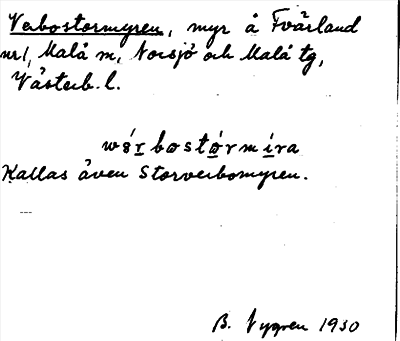 Verbostormyren, myr å Tvärland
nr 1, Malå sn, Norsjö och Malå tg,
Västerb. l.
wérbostórmíra
Kallas även Storverbomyren.
B. Nygren 1930